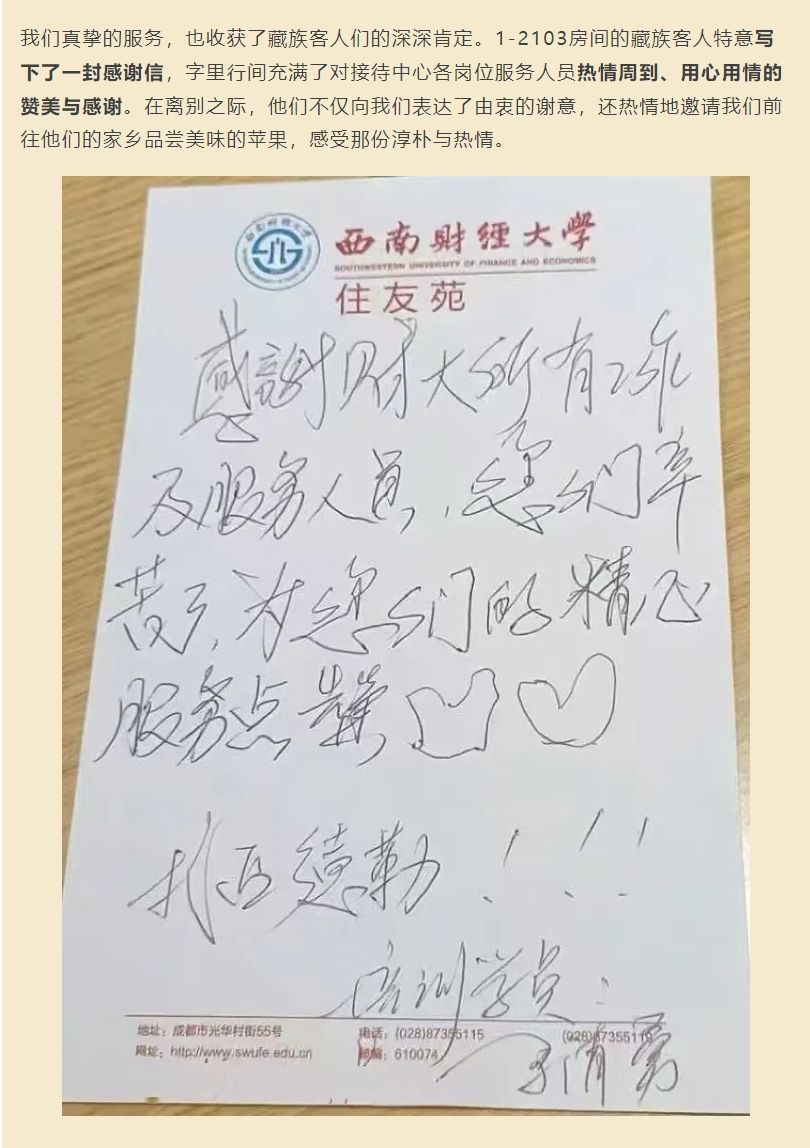 我们真挚的服务，也收获了藏族客人们的深深肯定。1-2103房间的藏族客人特意写
下了一封感谢信，字里行间充满了对接待中心各岗位服务人员热情周到、用心用情的
赞美与感谢。在离别之际，他们不仅向我们表达了由衷的谢意，还热情地邀请我们前
往他们的家乡品尝美味的苹果，感受那份淳朴与热情。
西南财经大学
西南财經大学
SOUTHWESTERN UNIVERSITY OF FINANCE AND ECONOMICS
住友苑
感謝财大所有工作
及服务人员，您们辛
苦了，为您们的精心
服务点赞
扎西德勒！！！
培训学员：
地址：成都市光华村街55号
电话：(028)87355115
(028)87355119
网址：http://www.swufe.edu.cn
邮编：610074